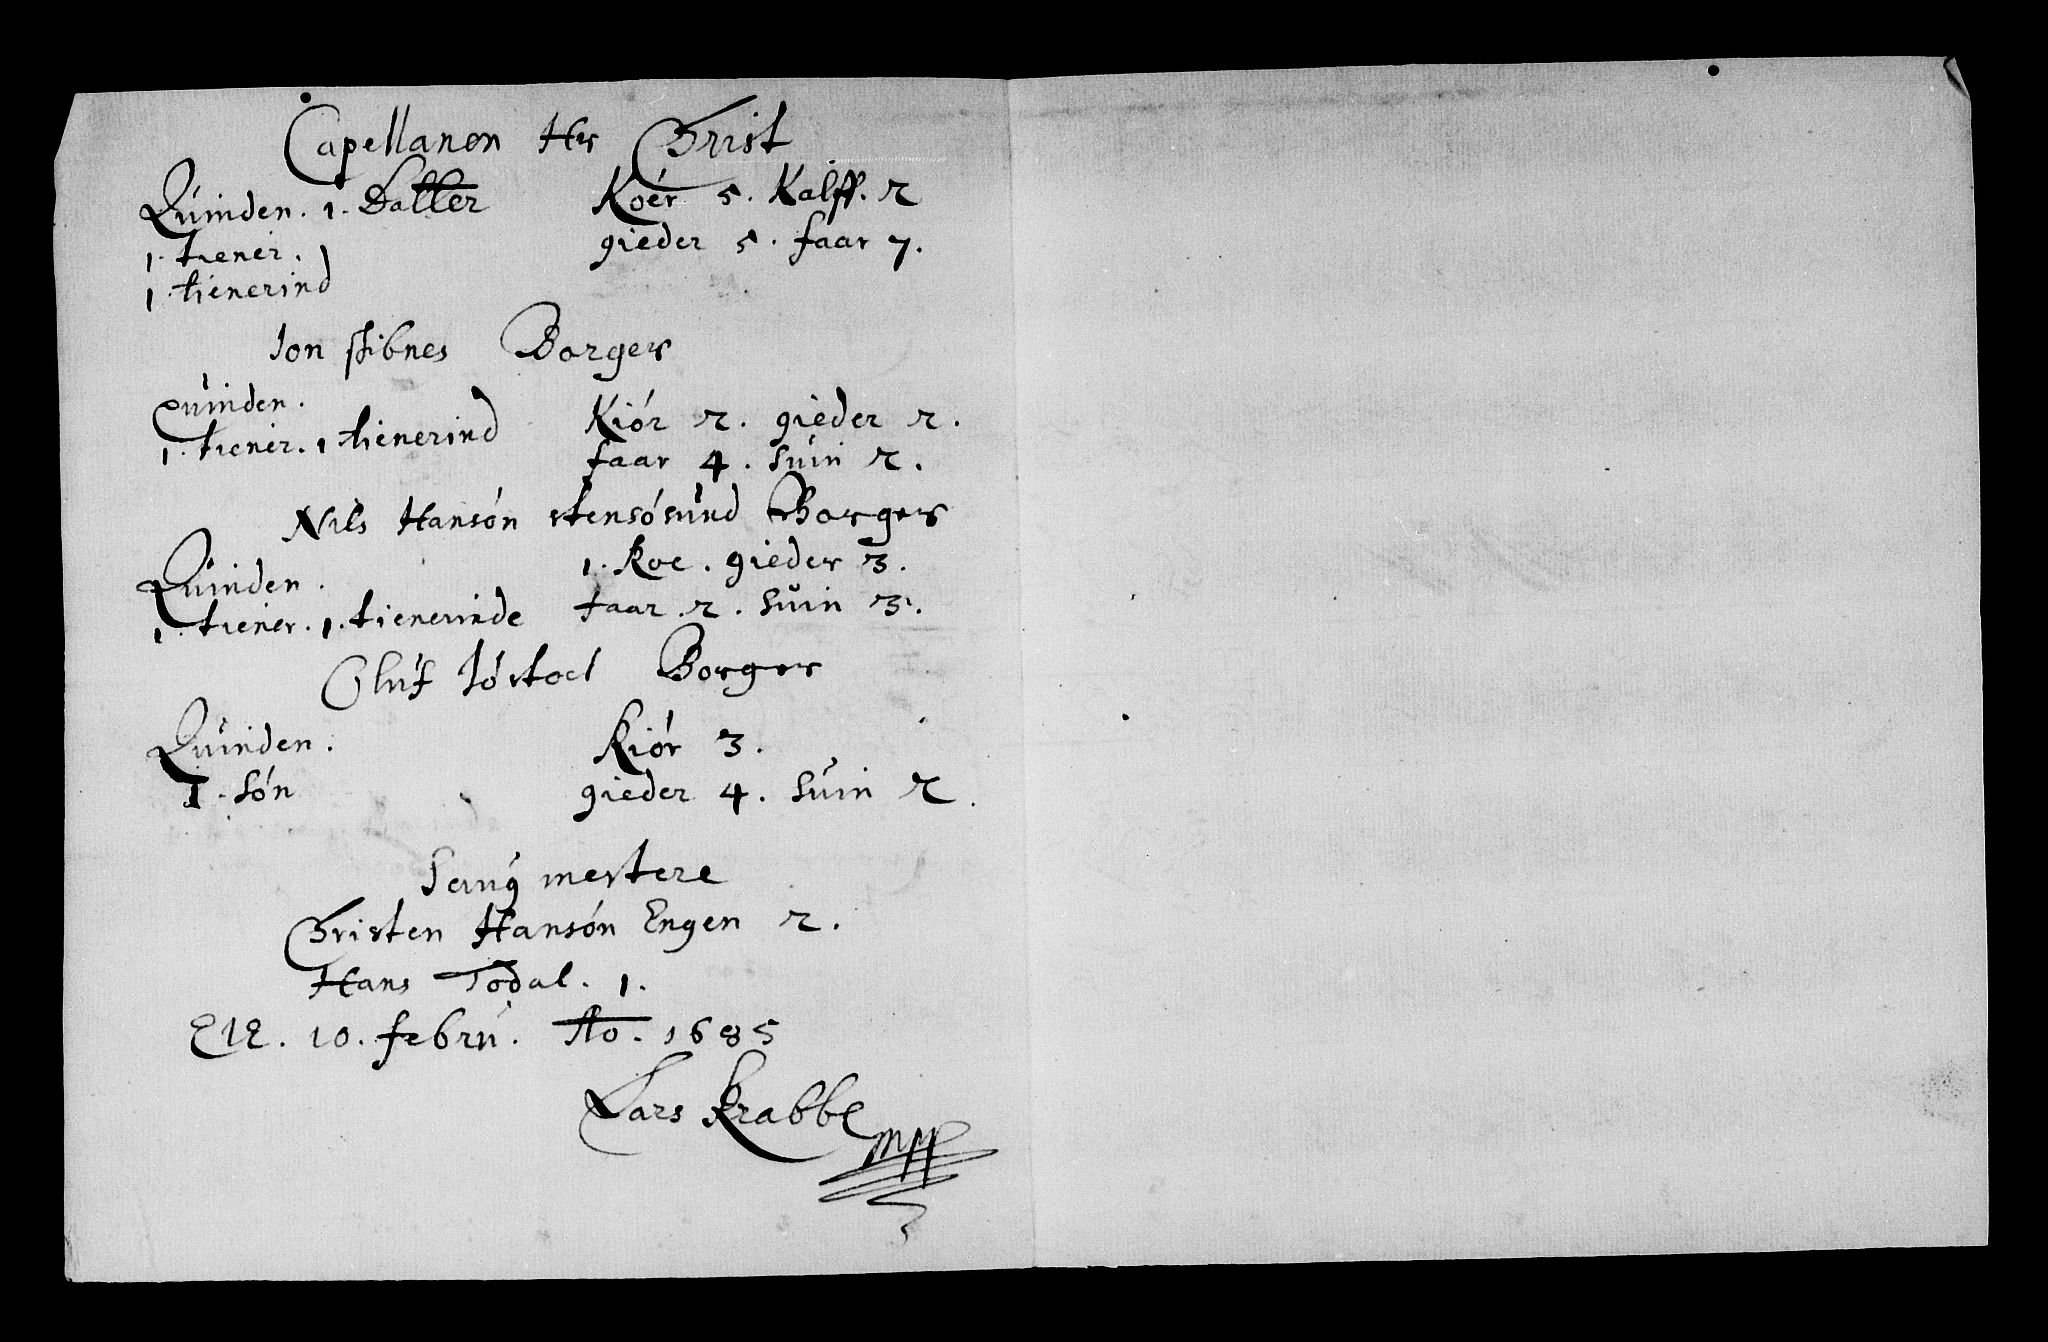 Capellanen Hr Christ
Quinden. 1. Datter Koér 5. Kalff. 2
1. tiener. gieder 5. faar 7.
1. tienerind
Jon stibnes Borger
Quinden.
1. tiener. 1 tienerind Kiór 2. gieder 2.
faar 4. Suin 2.
Nils Hansón stensósund Borger
Quinden. 1. Koe. gieder 3.
1. tiener. 1. tienerinde faar. 2. Suin 3.
Oluf Borger
Quinden. Kiór 3.
1. Són gieder 4. Suin 2.
mestere
Christen Hansón Engen 2.
Hans Todal. 1.
10. febru. Ao. 1685
Lars Krabbe
mpp